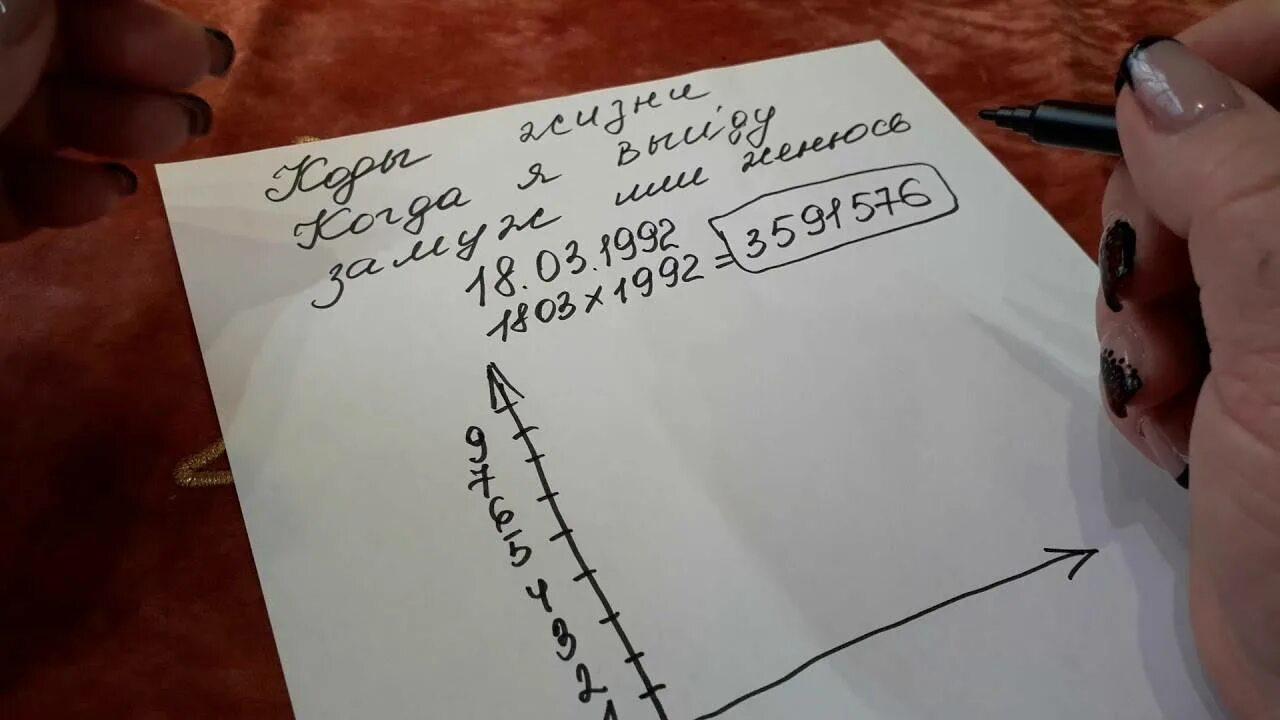 Коды жизни
Когда я выйду
замуж или женюсь
18.03.1992
1803 x 1992 = 3591576
9
7
6
5
4
3
2
1